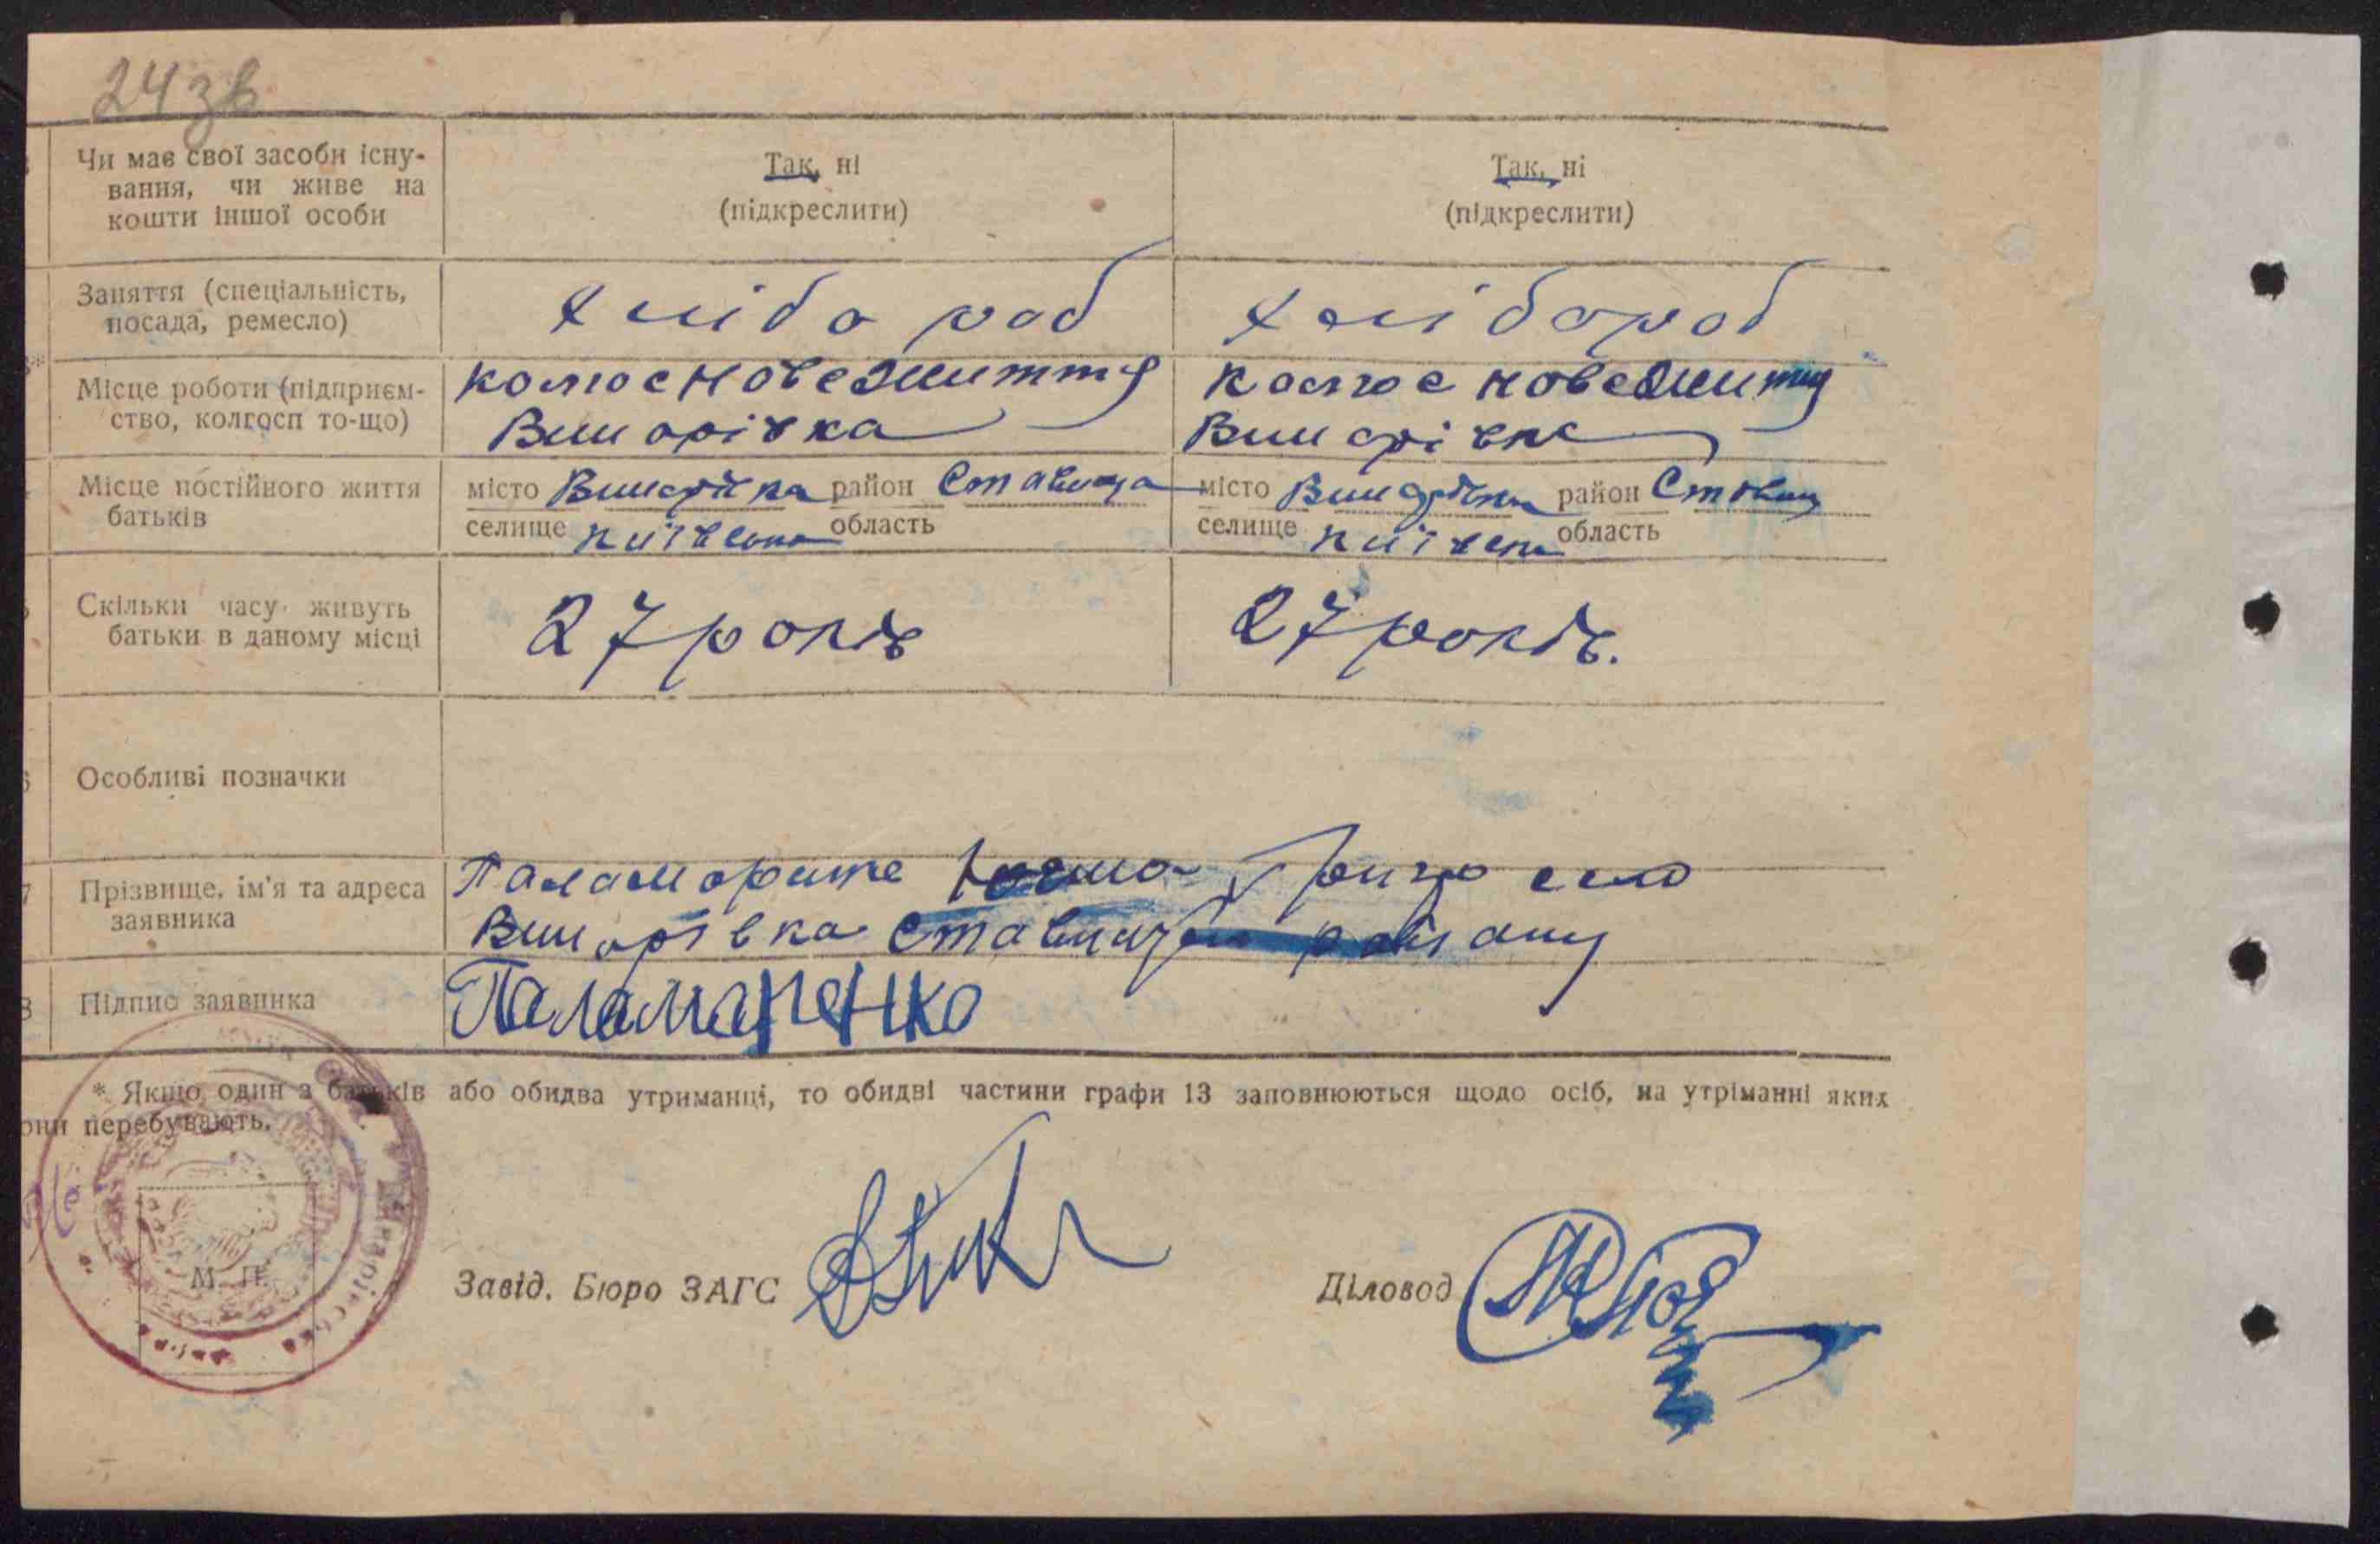 24 зв
Чи має свої засоби існу-
вання, чи живе на
кошти іншої особи
Так, ні
(підкреслити)
Так, ні
(підкреслити)
Заняття (спеціальність,
посада, ремесло)
хліборob
хлібороб
Місце роботи (підприєм-
ство, колгосп то-що)
нове життя
Винарівка
нове життя
Винарівка
Місце постійного життя
батьків
місто Винарівка район Ставища
селище Київська область
місто Винарівка район Ставищ
селище Київська область
Скільки часу живуть
батьки в даному місці
27 років
27 років.
Особливі позначки
Прізвище, ім'я та адреса
заявника
село
Винарівка району
Підпис заявника
Паламаренко
* Якщо один з батьків або обидва утриманці, то обидві частини графи 13 заповнюються щодо осіб, на утріманні яких
они перебувають.
М. П.
Завід. Бюро ЗАГС
Діловод